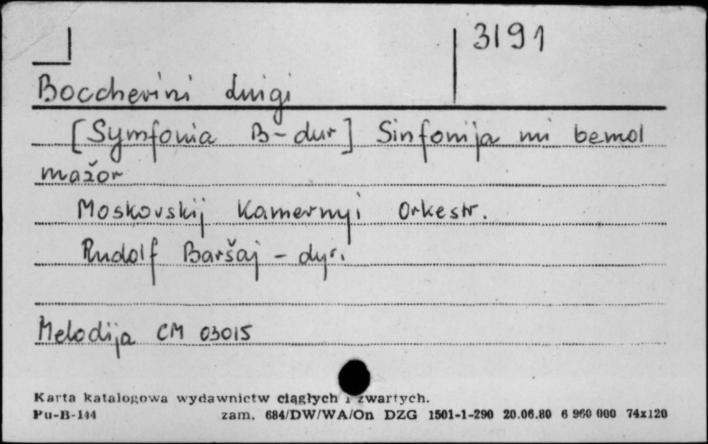 3191
Boccherini Luigi
[Symfonia B-dur] Sinfonija mi bemol
mažor
Moskovskij Kamernyj Orkestr.
Rudolf Baršaj - dyr.
Melodija CM 03015
Karta katalogowa wydawnictw ciągłych i zwartych.
Pu-B-144 zam. 684/DW/WA/On DZG 1501-1-290 20.06.80 6 960 000 74x120